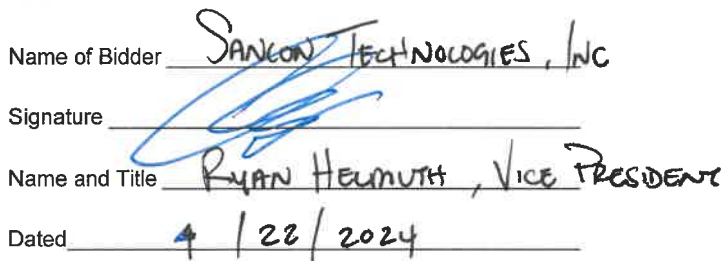 Name of Bidder SANCON TECHNOLOGIES, INC
Signature
Name and Title RYAN HELMUTH, VICE PRESIDENT
Dated 4 / 22 / 2024